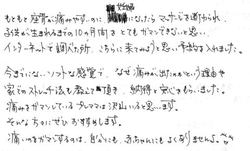 もともと座骨が痛みやすいのに妊娠になったらマッサージを断わられ、
お産が生まれるまでの10ヵ月間をとてもガマンできないと思い、
インターネットで調べた所、こちらに来てみようと思い予約を入れました。
今までにないソフトな感覚で、なぜ痛みが出たのかという理由や
家でのストレッチ法も教えて頂き、納得と安心をもらいました。
痛みをガマンしているプレママは沢山いると思います。
そんな方にぜひおすすめします。
痛いのをガマンするのは、自分にも、赤ちゃんにもよくありませんよね。